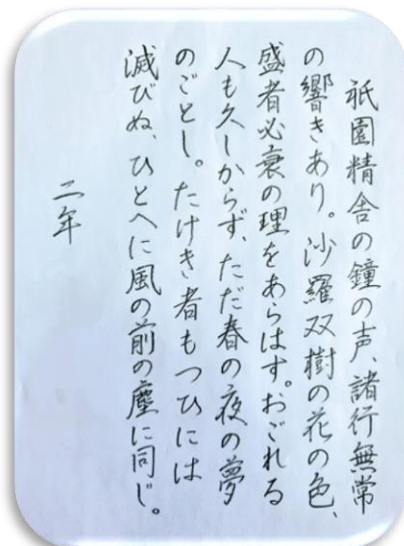 祇園精舎の鐘の声、諸行無常
の響きあり。沙羅双樹の花の色、
盛者必衰の理をあらはす。おごれる
人も久しからず、ただ春の夜の夢
のごとし。たけき者もつひには
滅びぬ、ひとへに風の前の塵に同じ。
二年